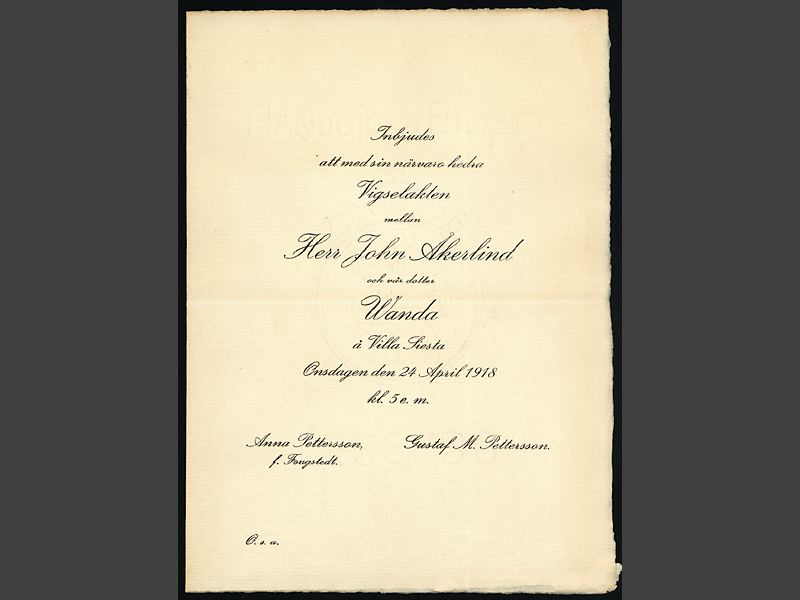 Inbjudes
att med sin närvaro hedra
Vigselakten
mellan
Herr John Åkerlind
och vår dotter
Wanda
å Villa Siesta
Onsdagen den 24 April 1918
kl. 5 e. m.
Anna Pettersson,
f. Fougstedt.
Gustaf M. Pettersson.
O. s. a.